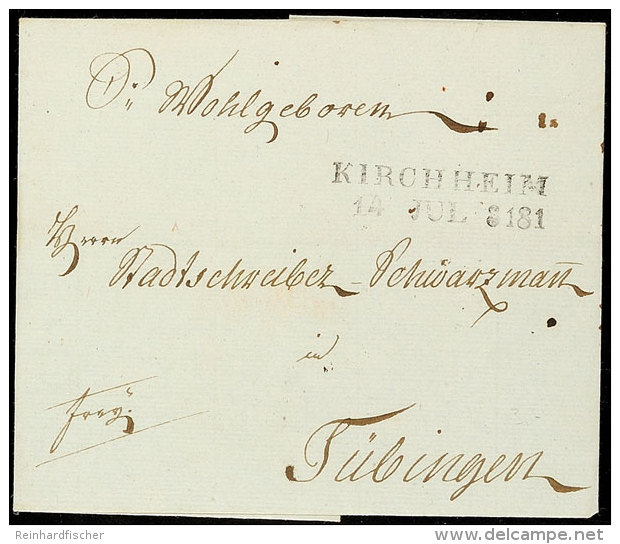 Sr. Wohlgeboren
KIRCHHEIM
14 JUL 8181
Herrn
Stadtschreiber Schwarzmañ
in
Frey.
Tübingen
Reinhardfischer
www.delcampe.net